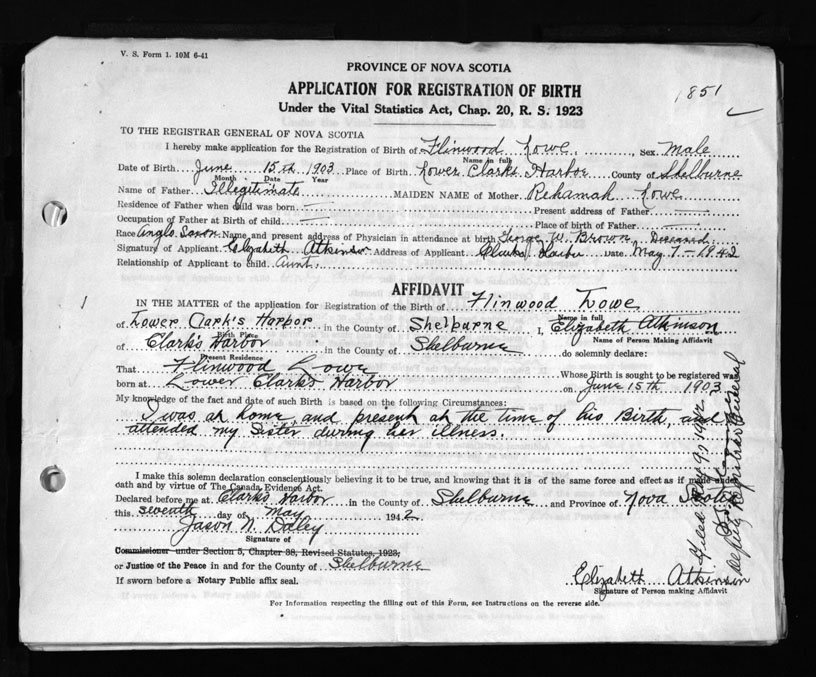 V. S. Form 1. 10M 6-41
PROVINCE OF NOVA SCOTIA
APPLICATION FOR REGISTRATION OF BIRTH
Under the Vital Statistics Act, Chap. 20, R. S. 1923
1851
TO THE REGISTRAR GENERAL OF NOVA SCOTIA
I hereby make application for the Registration of Birth of Flinwood Lowe Sex Male
Name in full
Date of Birth June 15th 1903 Place of Birth Lower Clarks Harbor County of Shelburne
Month Date Year
Name of Father Illegitimate MAIDEN NAME of Mother Rehamah Lowe
Residence of Father when child was born — Present address of Father —
Occupation of Father at Birth of child — Place of birth of Father —
Race Anglo Saxon Name and present address of Physician in attendance at birth George W. Brown Deceased
Signature of Applicant Elizabeth Atkinson Address of Applicant Clarks Harbor Date May 7-1942
Relationship of Applicant to child Aunt.
AFFIDAVIT
IN THE MATTER of the application for Registration of the Birth of Flinwood Lowe
Name in full
of Lower Clark's Harbor in the County of Shelburne I, Elizabeth Atkinson
Birth Place Name of Person Making Affidavit
of Clark's Harbor in the County of Shelburne do solemnly declare:
Present Residence
That Flinwood Lowe Whose Birth is sought to be registered was
born at Lower Clark's Harbor on June 15th 1903
My knowledge of the fact and date of such Birth is based on the following Circumstances:
I was at home, and present at the time of his Birth, and
attended my Sister during her illness.
I make this solemn declaration conscientiously believing it to be true, and knowing that it is of the same force and effect as if made under
oath and by virtue of The Canada Evidence Act.
Declared before me at Clark's Harbor in the County of Shelburne and Province of Nova Scotia
this seventh day of May 1942
Jason N. Daley
Signature of
Commissioner under Section 5, Chapter 38, Revised Statutes, 1923,
or Justice of the Peace in and for the County of Shelburne
If sworn before a Notary Public affix seal.
Elizabeth Atkinson
Signature of Person making Affidavit
For Information respecting the filling out of this Form, see Instructions on the reverse side.
Filed May 9, 1942
Deputy Registrar General